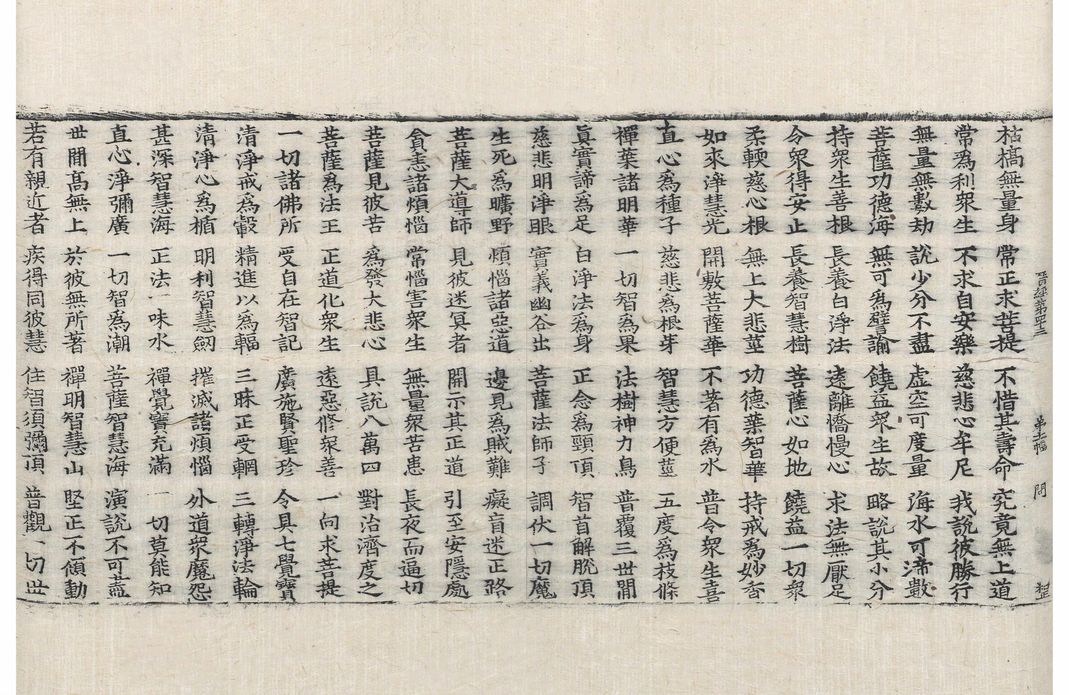 枯槁無量身 常正求菩提 不惜其壽命 究竟無上道
常為利衆生 不求自安樂 慈悲心牟尼 我說彼勝行
無量無數劫 說少分不盡 虛空可度量 海水可渧數
菩薩功德海 無可為譬諭 饒益衆生故 略說其小分
持衆生善根 長養白淨法 遠離憍慢心 求法無厭足
令衆得安止 長養智慧樹 菩薩心如地 饒益一切衆
柔輭慈心根 無上大悲莖 功德葉智華 持戒為妙香
如來淨慧光 開敷菩薩華 不著有為水 普令衆生喜
直心為種子 慈悲為根芽 智慧方便莖 五度為枝條
禪葉諸明華 一切智為果 法樹神力鳥 普覆三世閒
眞實諦為足 白淨法為身 正念為頸頂 智首解脫頂
慈悲明淨眼 實義幽谷出 菩薩法師子 調伏一切魔
生死為曠野 煩惱諸惡道 邊見為賊難 癡盲迷正路
菩薩大導師 見彼迷冥者 開示其正道 引至安隱處
貪恚諸煩惱 常惱害衆生 無量衆苦患 長夜而逼切
菩薩見彼苦 為發大悲心 具說八萬四 對治濟度之
菩薩為法王 正道化衆生 遠惡修衆善 一向求菩提
一切諸佛所 受自在智記 廣施賢聖珍 令具七覺寶
清淨戒為轂 精進以為輻 三昧正受輞 三轉淨法輪
清淨心為楯 明利智慧劒 摧滅諸煩惱 外道衆魔怨
甚深智慧海 正法一味水 禪覺寶充滿 一切莫能知
直心淨彌廣 一切智為潮 菩薩智慧海 演說不可盡
世閒高無上 於彼無所著 禪明智慧山 堅正不傾動
若有親近者 疾得同彼慧 住智須彌頂 普觀一切世